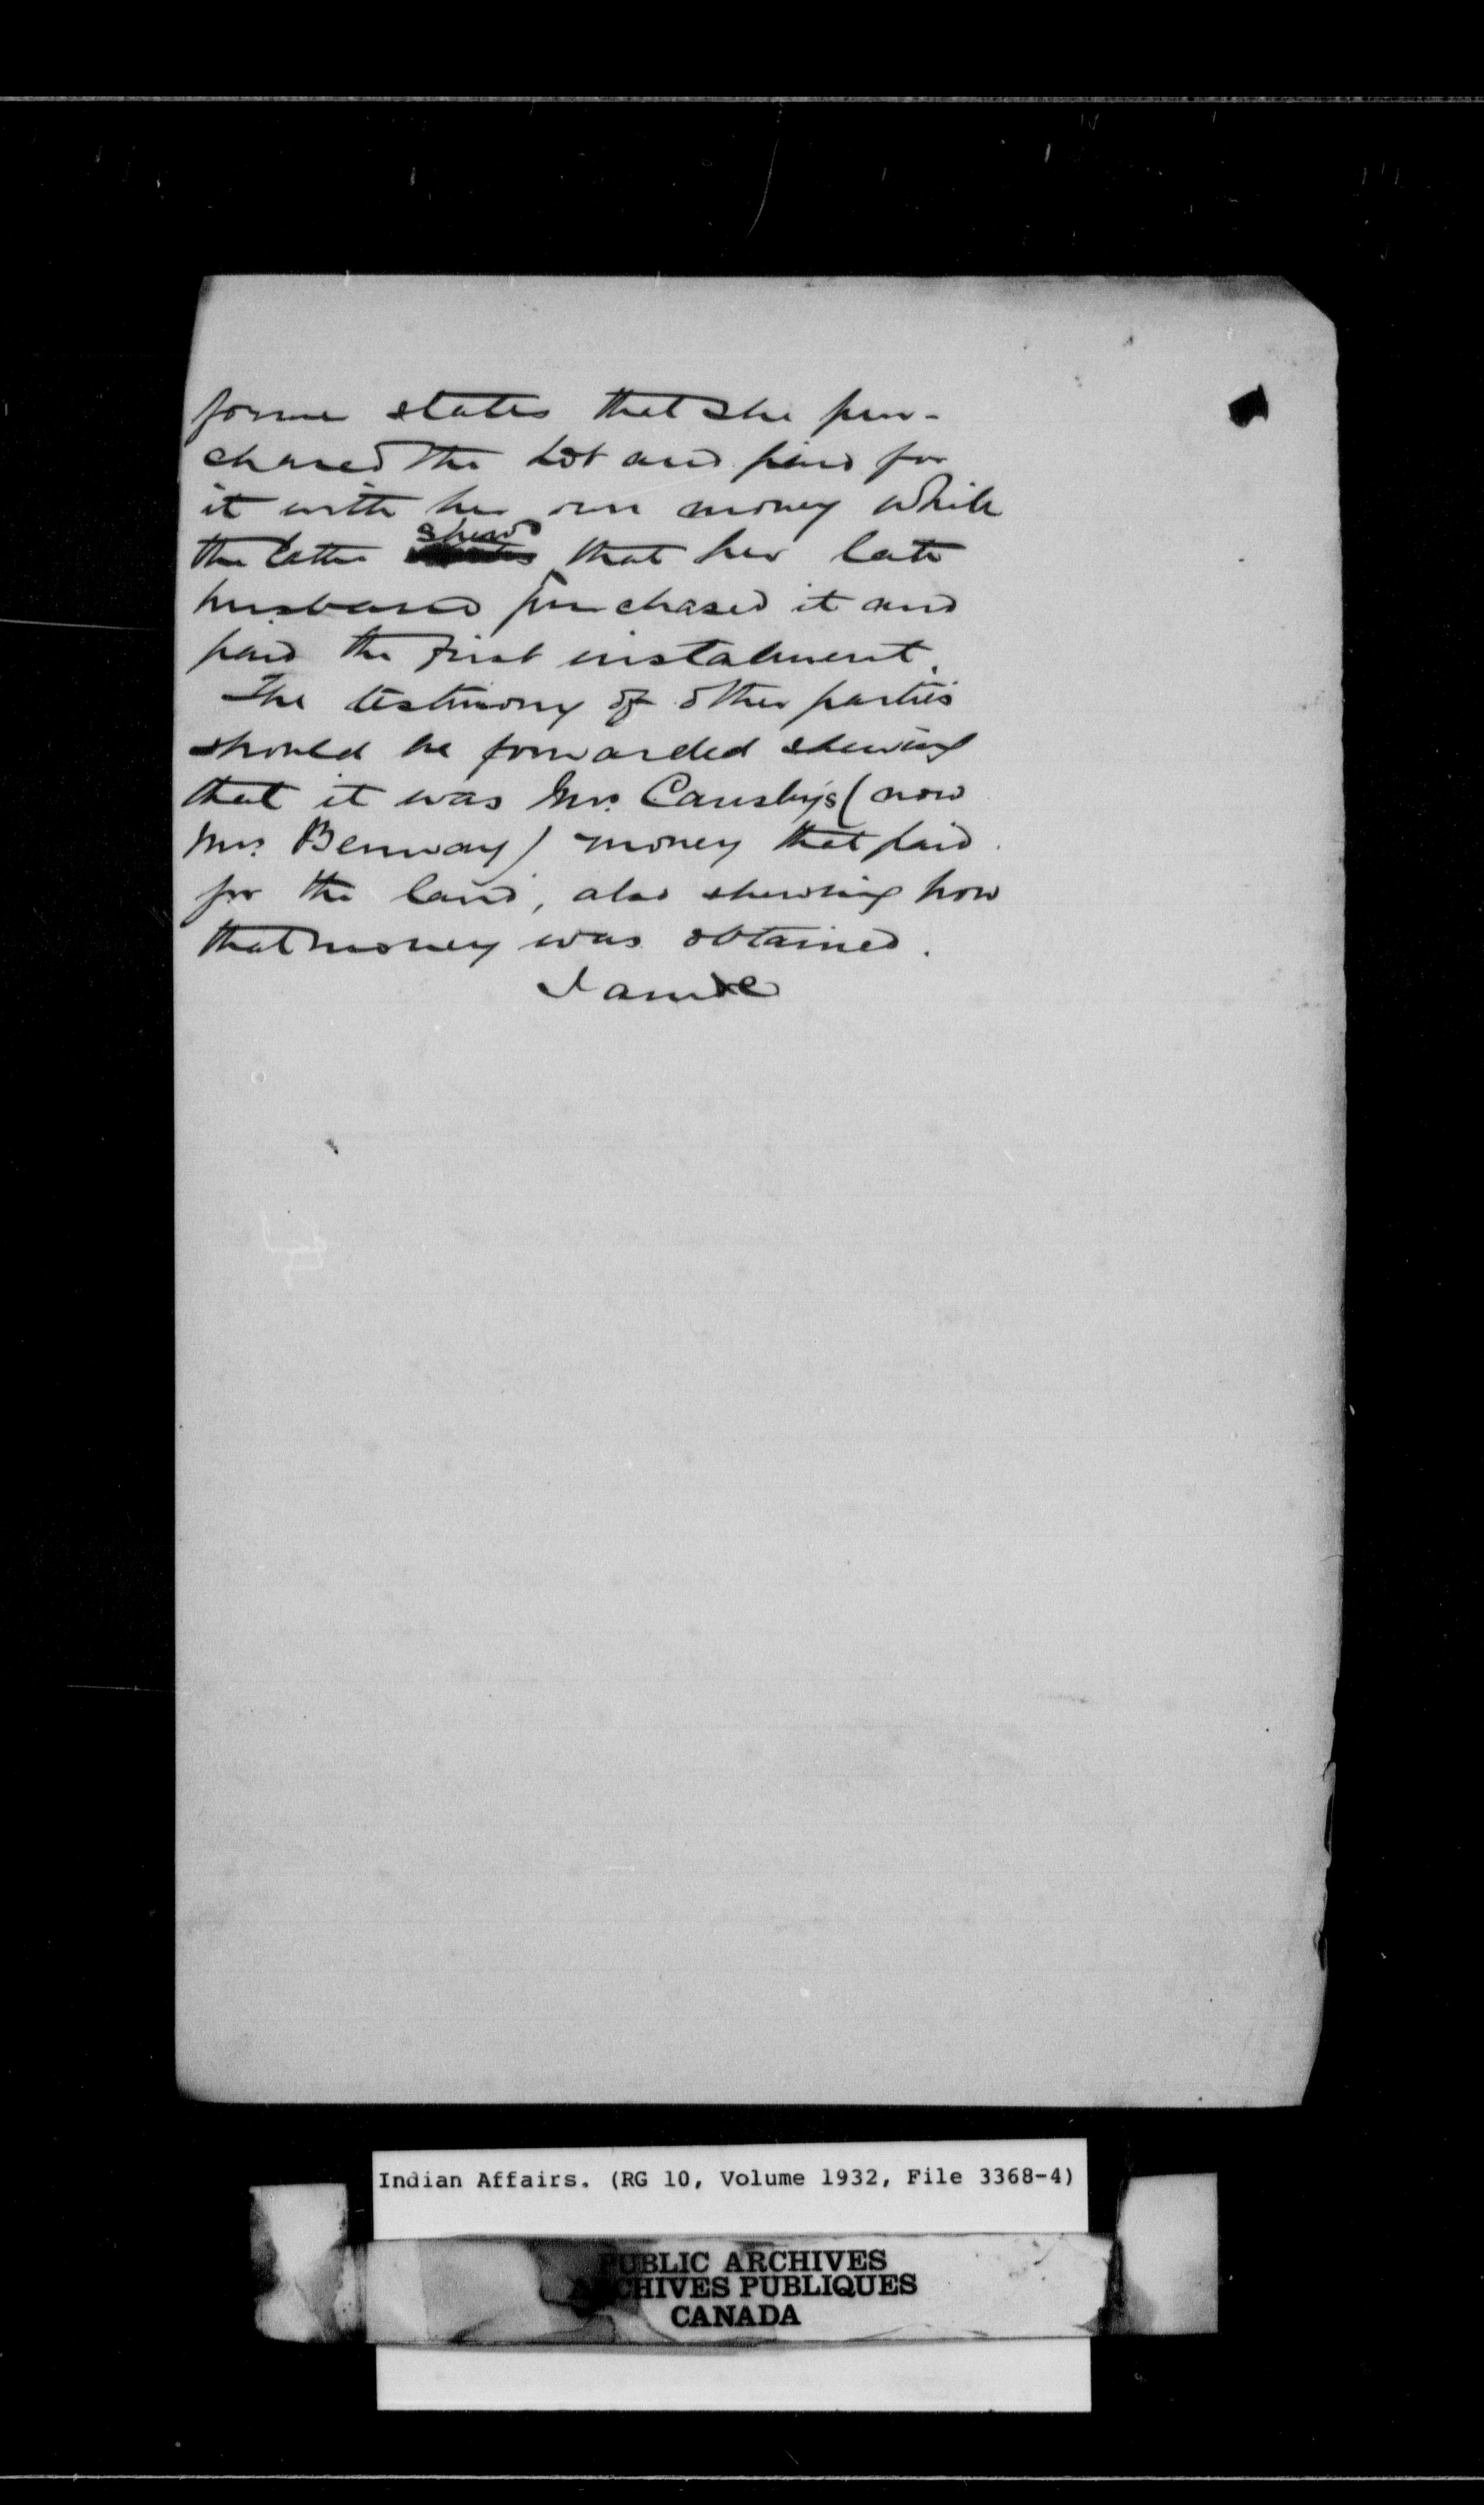 former states that she pur-
chased the Lot and paid for
it with her own money while
the latter shews that her late
husband purchased it and
paid the first instalment.
The testimony of other parties
should be forwarded shewing
that it was Mrs. Cansby's (now
Mrs. Benway) money that paid
for the land, also shewing how
that money was obtained.
I am &c
Indian Affairs. (RG 10, Volume 1932, File 3368-4)
PUBLIC ARCHIVES
ARCHIVES PUBLIQUES
CANADA